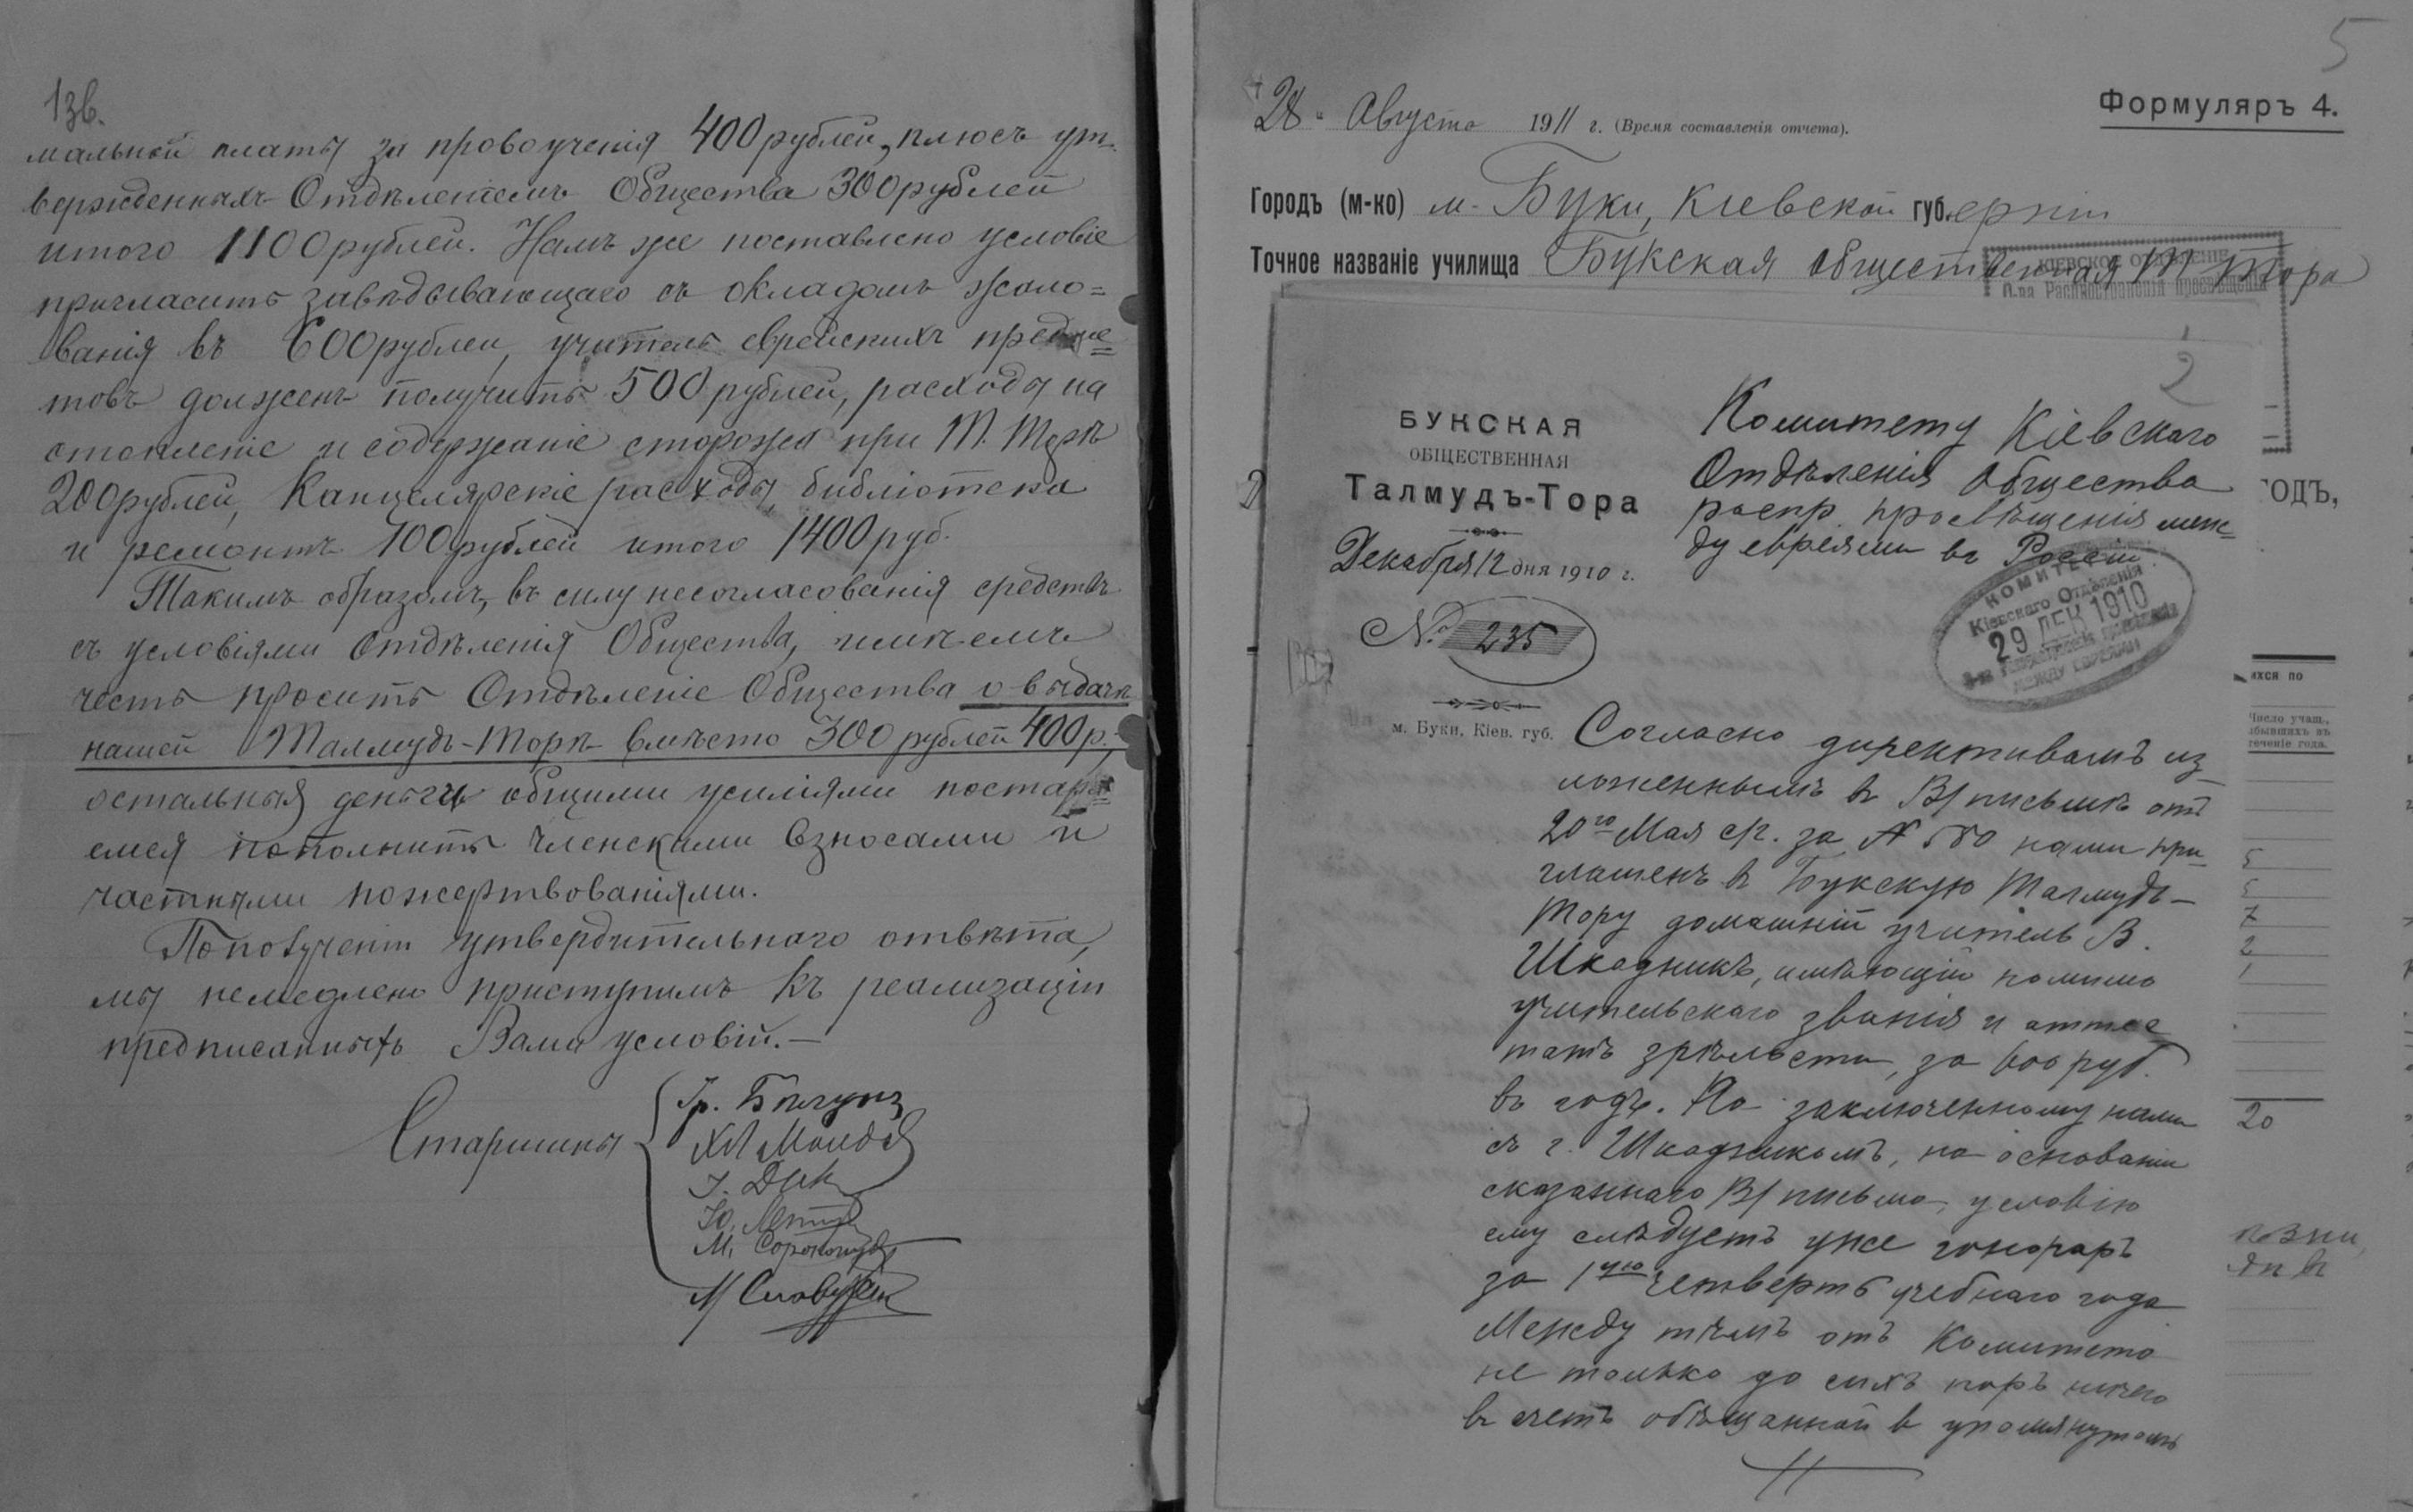 13б.
мальной платы за правоученія 400 рублей, плюсъ ут-
вержденныхъ Отдѣленіемъ Общества 300 рублей
итого 1100 рублей. Намъ же поставлено условіе
пригласить завѣдывающаго съ окладомъ жало=
ванія въ 600 рублей, учитель еврейскихъ предме=
товъ долженъ получить 500 рублей, расходы на
отопленіе и содержаніе сторожа при Т. Торѣ
200 рублей, Канцелярскіе расходы, библіотека
и ремонтъ 100 рублей итого 1400 руб.
Такимъ образомъ, въ силу несогласованія средствъ
съ условіями Отдѣленія Общества, имѣемъ
честь просить Отдѣленіе Общества о выдачѣ
нашей Талмудъ-Торѣ вмѣсто 300 рублей 400 р.,
остальныя деньги общими усиліями постара=
емся пополнить членскими взносами и
частными пожертвованіями.
По полученіи утвердительнаго отвѣта,
мы немедлено приступимъ къ реализаціи
предписанныхъ Вами условій.—
Старшины
М. Сорокопудъ
5
28 " Августа 1911 г. (Время составленія отчета).
Формуляръ 4.
Городъ (м-ко) м. Буки, Кіевской губ.ерніи
Точное названіе училища Букская общественная Т Тора
КІЕВСКОЕ ОТДѢЛЕНІЕ
О-ва Распространенія просвѣщенія
2
БУКСКАЯ
ОБЩЕСТВЕННАЯ
Талмудъ-Тора
Декабря 12 дня 1910 г.
№ 235
м. Буки, Кіев. губ.
Комитету Кіевскаго
Отдѣленія Общества
распр. просвѣщенія меж=
ду евреями въ Россіи
КОМИТЕТ
Кіевскаго Отдѣленія
29 ДЕК 1910
О-ва Распространенія просвѣщенія
МЕЖДУ ЕВРЕЯМИ
Согласно директивамъ из-
ложеннымъ въ В/ письмѣ отъ
20го Мая с/г. за № 580 нами при-
глашенъ въ Букскую Талмудъ-
Тору домашній учитель В.
Шкадникъ, имѣющій помимо
учительскаго званія и аттес
татъ зрѣлости, за 600 руб.
въ годъ. По заключенному нами
съ г. Шкадникомъ, на основаніи
сказаннаго В/ письма, условію
ему слѣдуетъ уже гонораръ
за 1ую четверть учебнаго года
Между тѣмъ отъ Комитета
не только до сихъ поръ ничего
въ счетъ обѣщанной въ упомянутомъ
ГОДЪ,
ихся по
Число учащ.,
выбывшихъ въ
теченіе года.
5
5
7
2
1
20